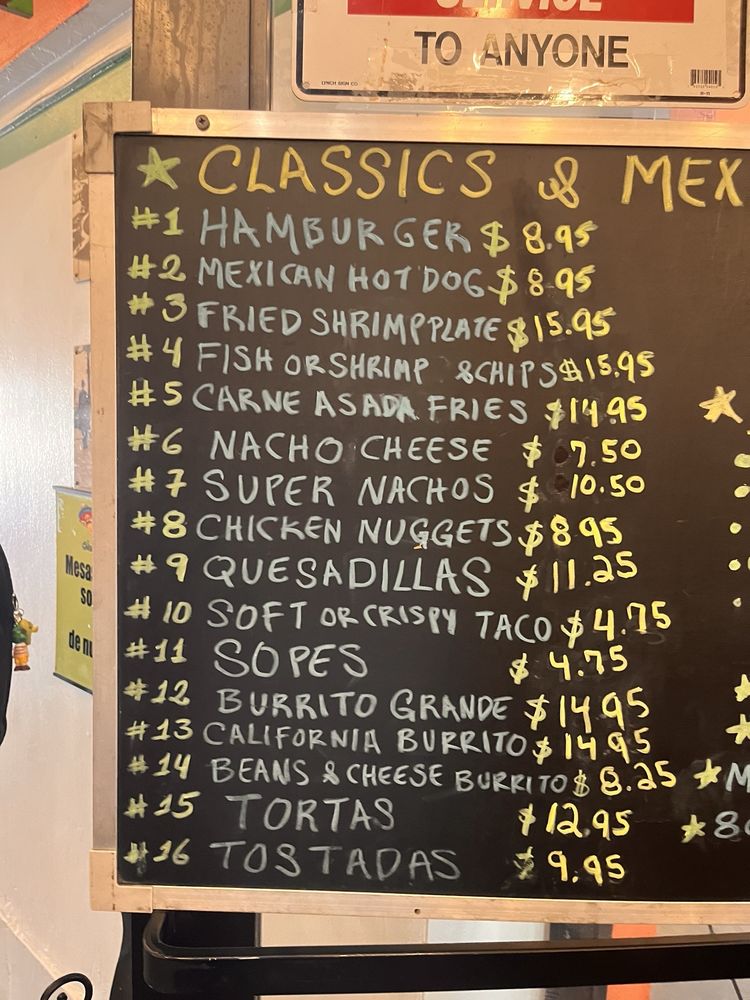 SERVICE
TO ANYONE
LYNCH SIGN CO.
CLASSICS & MEX
#1 HAMBURGER $ 8.95
#2 MEXICAN HOT DOG $ 8.95
#3 FRIED SHRIMP PLATE $15.95
#4 FISH OR SHRIMP &CHIPS $15.95
#5 CARNE ASADA FRIES $14.95
#6 NACHO CHEESE $ 7.50
#7 SUPER NACHOS $ 10.50
#8 CHICKEN NUGGETS $8.95
#9 QUESADILLAS $11.25
#10 SOFT OR CRISPY TACO $4.75
#11 SOPES $ 4.75
#12 BURRITO GRANDE $14.95
#13 CALIFORNIA BURRITO $14.95
#14 BEANS & CHEESE BURRITO $8.25
#15 TORTAS $12.95
#16 TOSTADAS $ 9.95
Mesa
so
de nu
M